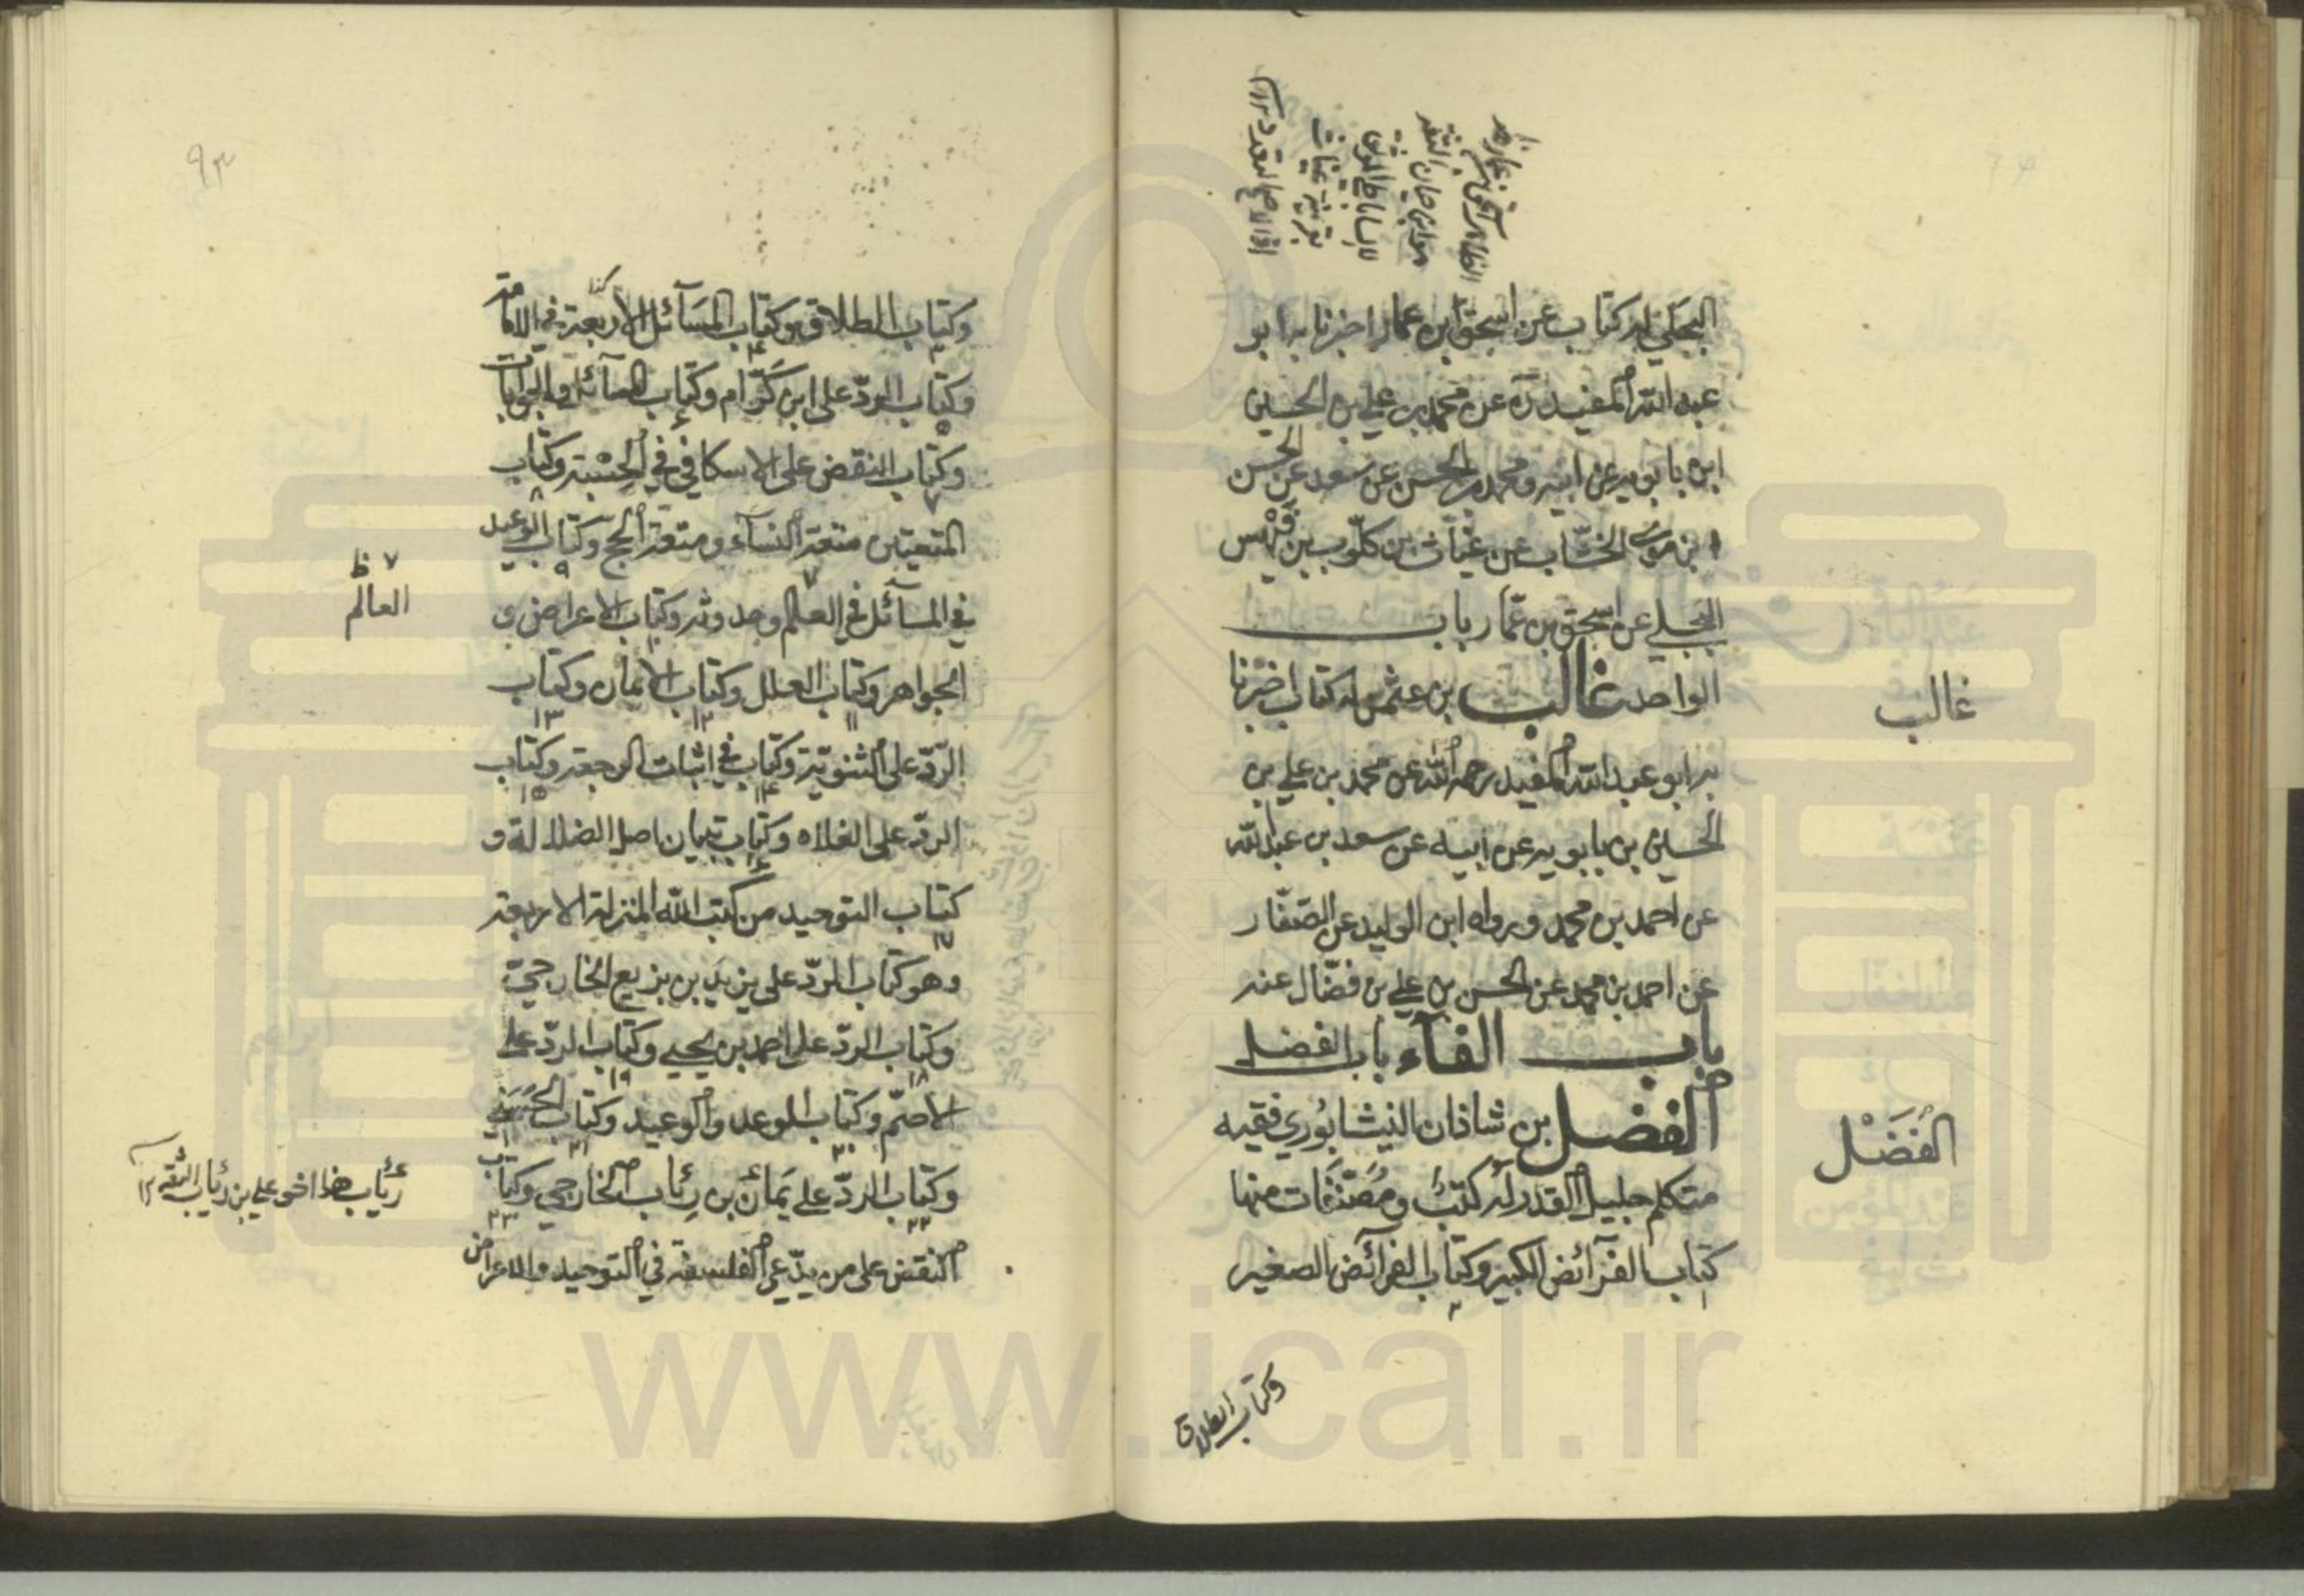 البجلي له كتاب عن اسحق بن عمار اخبرنا به ابو
عبد الله المفيد ره عن محمد بن علي بن الحسين
ابن بابويه عن ابيه ومحمد بن الحسن عن سعد عن الحسن
بن موسى الخشاب عن غياث بن كلوب بن فيهس
البجلي عن اسحق بن عمار باب
الواحد غالب بن عثمن له كتاب اخبرنا
به ابو عبد الله المفيد رحمه الله عن محمد بن علي بن
الحسين بن بابويه عن ابيه عن سعد بن عبد الله
عن احمد بن محمد ورواه ابن الوليد عن الصفّار
عن احمد بن محمد عن الحسن بن علي بن فضّال عنه
باب الفآء باب الفضل
الفضل بن شاذان النيشابوري فقيه
متكلم جليل القدر له كتبٌ ومُصَنَّفات منها
كتاب الفرآئض الكبير وكتاب الفرآئض الصغير
وكتاب الطلاق
غالب
الفَضْل
٩٣
وكتاب الطلاق وكتاب المسآئل الاربعة في الامامة
وكتاب الردّ على ابن كرّام وكتاب المسآئل والجوابات
وكتاب النقض على الاسكافي في الجسْم وكتاب
المتعتين متعة النسآء ومتعة الحجّ وكتاب الوعيد
في المسآئل في العالم وحدوثه وكتاب الاعراض و
الجواهر وكتاب العلل وكتاب الايمان وكتاب
الردّ على الثنويّة وكتاب في اثبات الرجعة وكتاب
الردّ على الغلاه وكتاب تبيان اصل الضلالة و
كتاب التوحيد من كتب الله المنزلة الاربعة
وهو كتاب الردّ على يزيد بن بزيع الخارجيّ
وكتاب الردّ على احمد بن يحيى وكتاب الردّ على
الاصمّ وكتاب الوعد والوعيد وكتاب الحسني
وكتاب الردّ على يمان بن رئاب الخارجي وكتاب
النقض على من يدّعي الفلسفة في التوحيد والاعراض
٧ ظ
العالم
رئاب هذا اخو علي بن رئاب الثقه ١٢
www.ical.ir